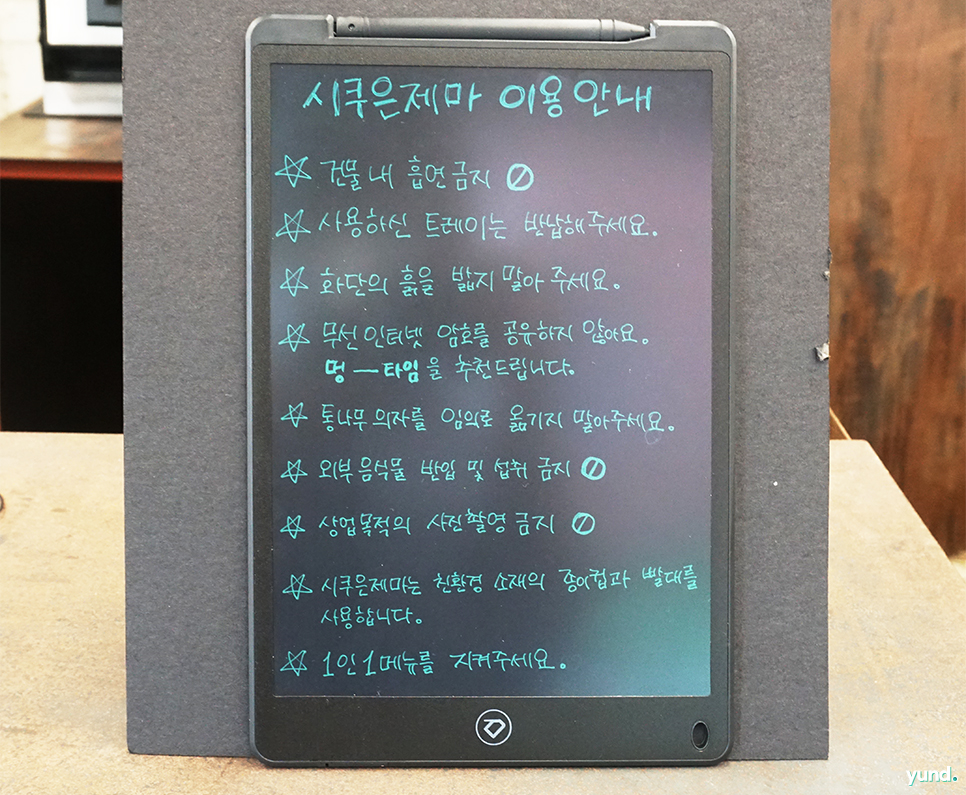 시쿠은제마 이용안내
☆ 건물 내 흡연금지
☆ 사용하신 트레이는 반납해주세요.
☆ 화단의 흙을 밟지 말아 주세요.
☆ 무선인터넷 암호를 공유하지 않아요.
멍—타임을 추천드립니다.
☆ 통나무의자를 임의로 옮기지 말아주세요.
☆ 외부음식물 반입 및 섭취 금지
☆ 상업목적의 사진촬영금지
☆ 시쿠은제마는 친환경 소재의 종이컵과 빨대를
사용합니다.
☆ 1인1메뉴를 지켜주세요.
yund.